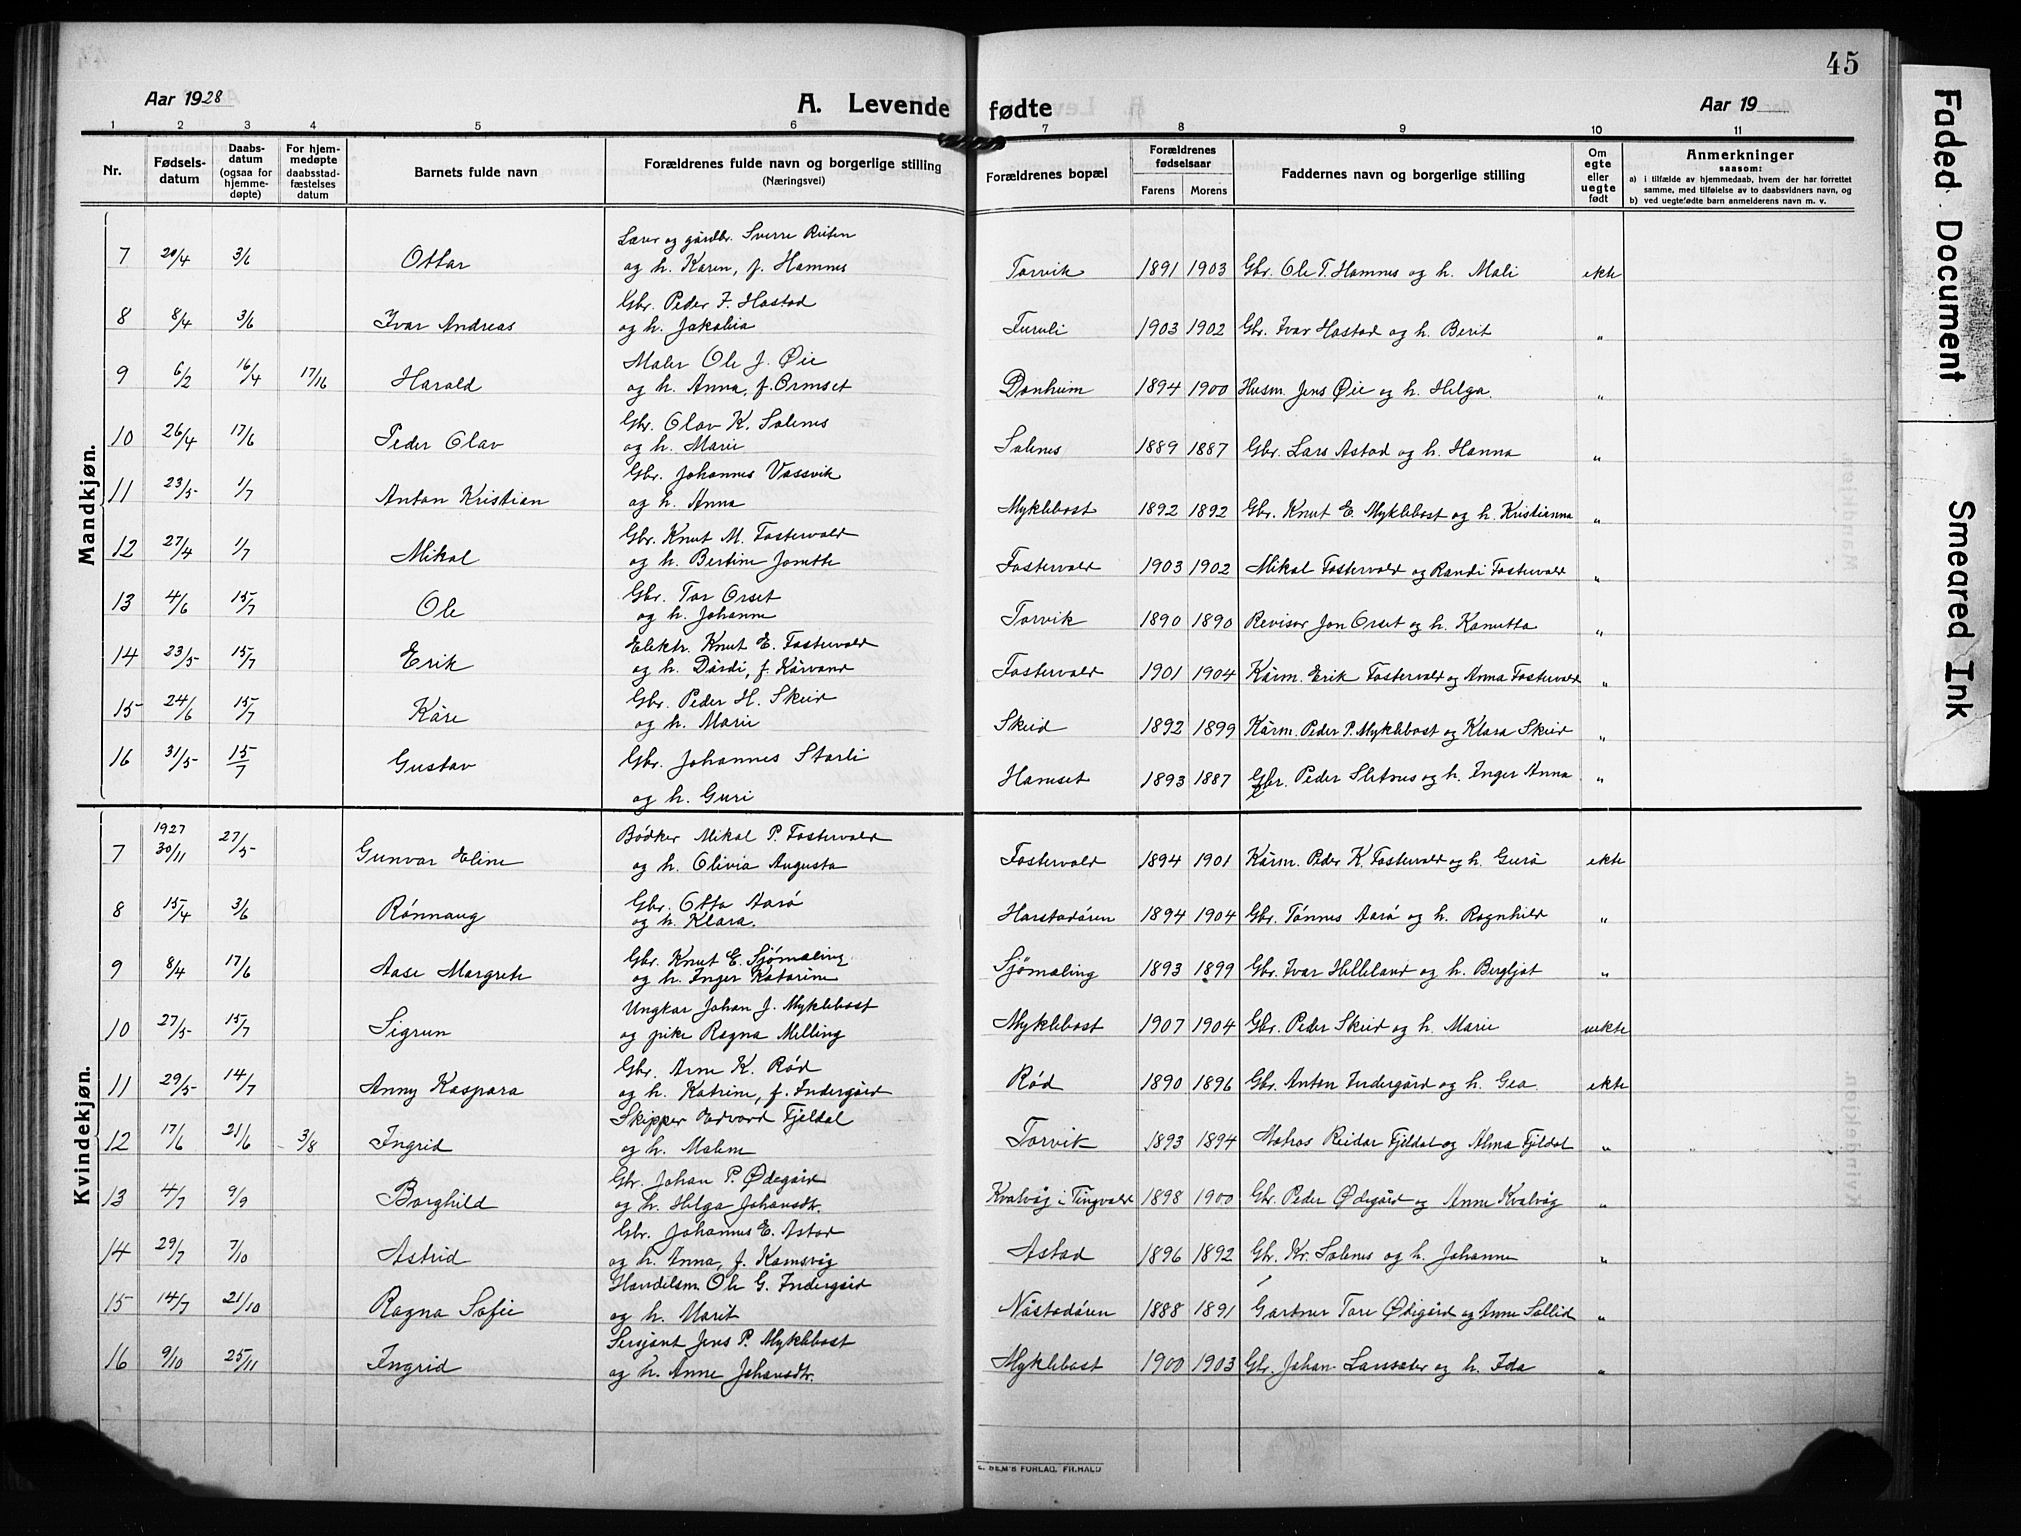 45
Aar 1928
A. Levende fødte
Aar 19
1 2 3 4 5 6 7 8 9 10 11
Nr.
Fødsels-
datum
Daabs-
datum
(ogsaa for
hjemme-
døpte)
For hjem-
medøpte
daabsstad-
fæstelses
datum
Barnets fulde navn
Forældrenes fulde navn og borgerlige stilling
(Næringsvei)
Forældrenes bopæl
Forældrenes
fødselsaar
Farens Morens
Faddernes navn og borgerlige stilling
Om
egte
eller
uegte
født
Anmerkninger
saasom:
a) i tilfælde av hjemmedaab, hvem der har forrettet
samme, med tilføielse av to daabsvidners navn, og
b) ved uegtefødte barn anmelderens navn m. v.
Mandkjøn.
Lærer og gårdbr. Sverre Reiten
7 20/4 3/6 Ottar og h. Karen, f. Hamnes Torvik 1891 1903 Gbr. Ole T. Hamnes og h. Mali ekte
Gbr. Peder I. Hastad
8 8/4 3/6 Ivar Andreas og h. Jakobia Furuli 1903 1902 Gbr. Ivar Hastad og h. Berit "
Maler Ole J. Øie
9 6/2 16/4 17/16 Harald og h. Anna, f. Ormset Donheim 1894 1900 Husm. Jens Øie og h. Helga "
Gbr. Olav K. Solenes
10 26/4 17/6 Peder Olav og h. Marie Solenes 1889 1887 Gbr. Lars Astad og h. Hanna "
Gbr. Johannes Vassvik
11 23/5 1/7 Anton Kristian og h. Anna Myklebost 1892 1892 Gbr. Knut E. Myklebost og h. Kristianna "
Gbr. Knut M. Fostervold
12 27/4 1/7 Mikal og h. Bertine Jonette Fostervold 1903 1902 Mikal Fostervold og Randi Fostervold "
Gbr. Tor Orset
13 4/6 15/7 Ole og h. Johanne Torvik 1890 1890 Revisor Jon Orset og h. Kanutta "
Elektr. Knut E. Fostervold
14 23/5 15/7 Erik og h. Dårdi, f. Kårvand Fostervold 1901 1904 Kårm. Erik Fostervold og Anna Fostervold "
Gbr. Peder H. Skeid
15 24/6 15/7 Kåre og h. Marie Skeid 1892 1899 Kårm. Peder P. Myklebost og Klara Skeid "
16 31/5 15/7 Gustav Gbr. Johannes Storli Hamset 1893 1887 Gbr. Peder Sletnes og h. Inger Anna "
og h. Guri
Kvindekjøn.
1927 Bødker Mikal P. Fostervold
7 30/11 27/5 Gunvor Eline og h. Olivia Augusta Fostervold 1894 1901 Kårm. Peder K. Fostervold og h. Gurå ekte
Gbr. Otto Aarø
8 15/4 3/6 Rønnaug og h. Klara. Harstadøren 1894 1904 Gbr. Tønnes Aarø og h. Ragnhild "
Gbr. Knut E. Sjømæling
9 8/4 17/6 Aase Margrete og h. Inger Katarine Sjømæling 1893 1899 Gbr. Ivar Helleland og h. Bergljot "
Ungkar Johan J. Myklebost
10 27/5 15/7 Sigrun og pike Ragna Melling Myklebost 1907 1904 Gbr. Peder Skeid og h. Marie uekte
Gbr. Arne K. Rød
11 29/5 14/7 Anny Kaspara og h. Katrine, f. Indergård Rød 1890 1896 Gbr. Anton Indergård og h. Gea. ekte
Skipper Edvard Fjeldal
12 17/6 21/6 3/8 Ingrid og h. Malene Torvik 1893 1894 Matros Reidar Fjeldal og Alma Fjeldal "
Gbr. Johan P. Ødegård
13 4/7 9/9 Borghild og h. Helga Johansdtr. Kvalvåg i Tingvold 1898 1900 Gbr. Peder Ødegård og Anne Kvalvåg "
Gbr. Johannes E. Astad
14 29/7 7/10 Astrid og h. Anna, f. Kamsvåg Astad 1896 1892 Gbr. Kr. Solenes og h. Johanne "
Handelsm. Ole G. Indergård
15 14/7 21/10 Ragna Sofie og h. Marit Nåstadøren 1888 1891 Gartner Tore Ødegård og Anne Sollid "
Sersjant Jens P. Myklebost
16 9/10 25/11 Ingrid og h. Anne Johansdtr. Myklebost 1900 1903 Gbr. Johan Larssæter og h. Ida "
E. SEM'S FORLAG, FR.HALD
Faded Document
Smeared Ink